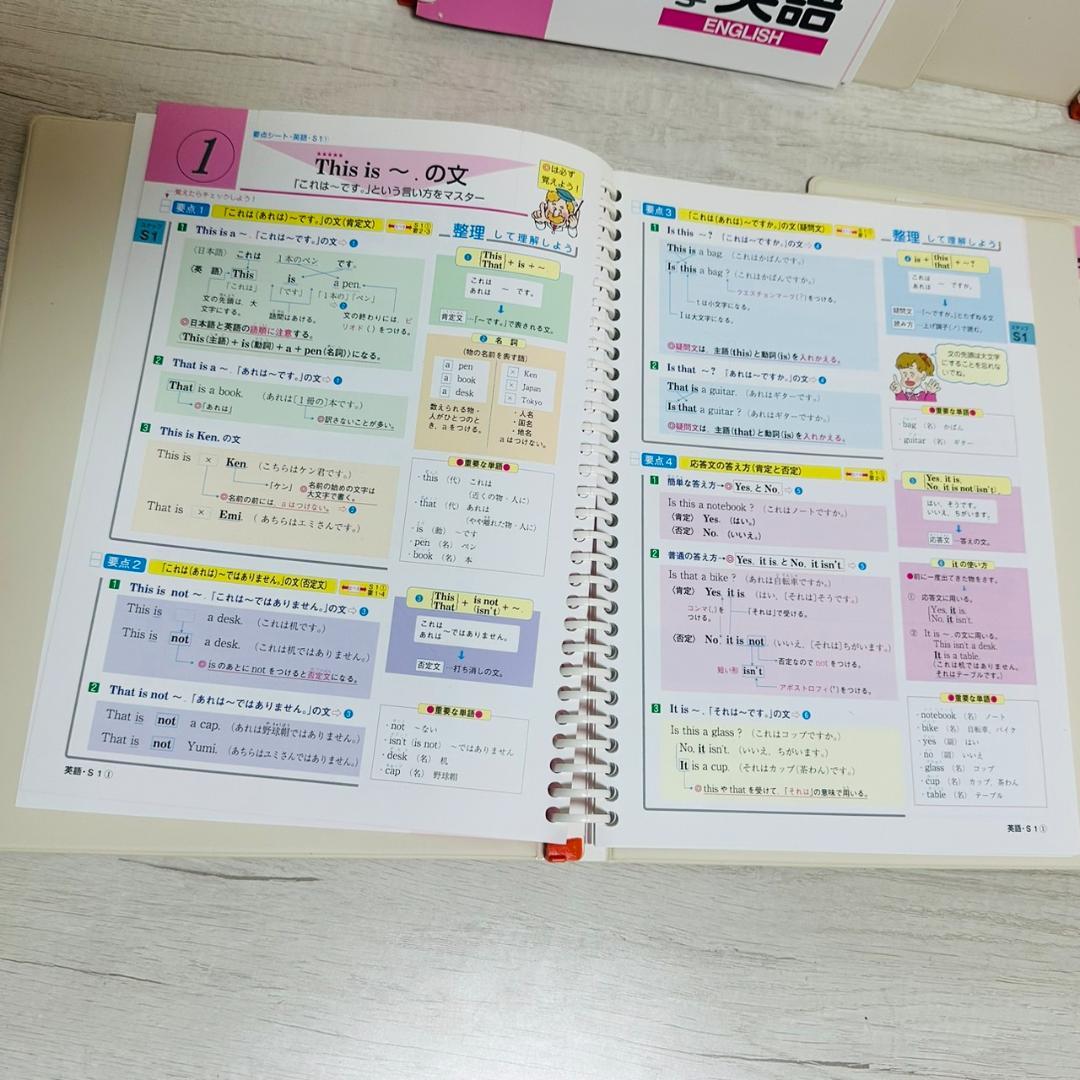 英語
ENGLISH
1
要点シート・英語・S1①
★★★★★
This is ～ . の文
「これは～です。」という言い方をマスター
◎は必ず
覚えよう!
覚えたらチェックしよう!
ステップ
S1
要点1
「これは(あれは)～です。」の文(肯定文)
整理 して理解しよう
1 This is a ～ .「これは～です。」の文⇨❶
(日本語) これは 1本のペン です。
(英 語)→This is a pen.
「これは」 「です」 「1本の」「ペン」
文の先頭は、大
文字にする。
語間はあける。
文の終わりには、ピ
リオド(.)をつける。
◎日本語と英語の語順に注意する。
This(主語)+is(動詞)+a+pen(名詞)になる。
2 That is a ～ .「あれは～です。」の文⇨❶
That is a book. (あれは[1冊の]本です。)
◎「あれは」
◎訳さないことが多い。
3 This is Ken. の文
This is × Ken. (こちらはケン君です。)
「ケン」 ◎名前の始めの文字は
大文字で書く。
◎名前の前には、aはつけない。⇨❷
That is × Emi. (あちらはエミさんです。)
❶ This
That + is + ～.
これは
あれは ～ です。
肯定文 …「～です。」で表される文。
❷ 名 詞
(物の名前を表す語)
a pen
a book
a desk
× Ken
× Japan
× Tokyo
数えられる物・
人がひとつのと
き、aをつける。
・人名
・国名
・地名
aはつけない。
●重要な単語●
・this (代) これは
(近くの物・人に)
・that (代) あれは
(やや離れた物・人に)
・is (動) ～です
・pen (名) ペン
・book (名) 本
要点2
「これは(あれは)～ではありません。」の文(否定文)
1 This is not ～ .「これは～ではありません。」の文⇨❸
This is a desk. (これは机です。)
This is not a desk. (これは机ではありません。)
◎isのあとにnotをつけると否定文になる。
2 That is not ～ .「あれは～ではありません。」の文⇨❸
That is not a cap. (あれは野球帽ではありません。)
That is not Yumi. (あちらはユミさんではありません。)
❸ This
That + is not
(isn't) + ～.
これは
あれは ～ではありません。
否定文 …打ち消しの文。
●重要な単語●
・not ～ない
・isn't (is not) ～ではありません
・desk (名) 机
・cap (名) 野球帽
英語・S1①
要点3
「これは(あれは)～ですか。」の文(疑問文)
整理 して理解しよう
1 Is this ～ ?「これは～ですか。」の文⇨❹
This is a bag. (これはかばんです。)
Is this a bag ? (これはかばんですか。)
クエスチョンマーク(?)をつける。
tは小文字になる。
Iは大文字になる。
◎疑問文は、主語(this)と動詞(is)を入れかえる。
2 Is that ～ ?「あれは～ですか。」の文⇨❹
That is a guitar. (あれはギターです。)
Is that a guitar ? (あれはギターですか。)
◎疑問文は、主語(that)と動詞(is)を入れかえる。
❹ is + this
that + ～?
これは
あれは ～ ですか。
疑問文 …「～ですか。」とたずねる文
読み方 …上げ調子(↗)で読む。
ステップ
S1
文の先頭は大文字
にすることを忘れな
いでね。
●重要な単語●
・bag (名) かばん
・guitar (名) ギター
要点4
応答文の答え方(肯定と否定)
1 簡単な答え方→◎Yes.とNo.⇨❺
Is this a notebook ? (これはノートですか。)
(肯定) Yes. (はい。)
(否定) No. (いいえ。)
2 普通の答え方→◎Yes, it is.とNo, it isn't.⇨❺
Is that a bike ? (あれは自転車ですか。)
(肯定) Yes, it is. (はい、[それは]そうです。)
コンマ(,)を
つける。
[それは]で受ける。
(否定) No, it is not. (いいえ、[それは]ちがいます。)
否定なのでnotをつける。
短い形 isn't
アポストロフィ(')をつける。
3 It is ～ .「それは～です。」の文⇨❻
Is this a glass ? (これはコップですか。)
No, it isn't. (いいえ、ちがいます。)
It is a cup. (それはカップ(茶わん)です。)
◎thisやthatを受けて、「それは」の意味で用いる。
❺ Yes, it is.
No, it is not(isn't).
はい、そうです。
いいえ、ちがいます。
応答文 …答えの文。
❻ itの使い方
●前に一度出てきた物をさす。
① 応答文に用いる。
Yes, it is.
No, it isn't.
② It is ～. の文に用いる。
This isn't a desk.
It is a table.
(これは机ではありません。
それはテーブルです。)
●重要な単語●
・notebook (名) ノート
・bike (名) 自転車、バイク
・yes (副) はい
・no (副) いいえ
・glass (名) コップ
・cup (名) カップ、茶わん
・table (名) テーブル
英語・S1①